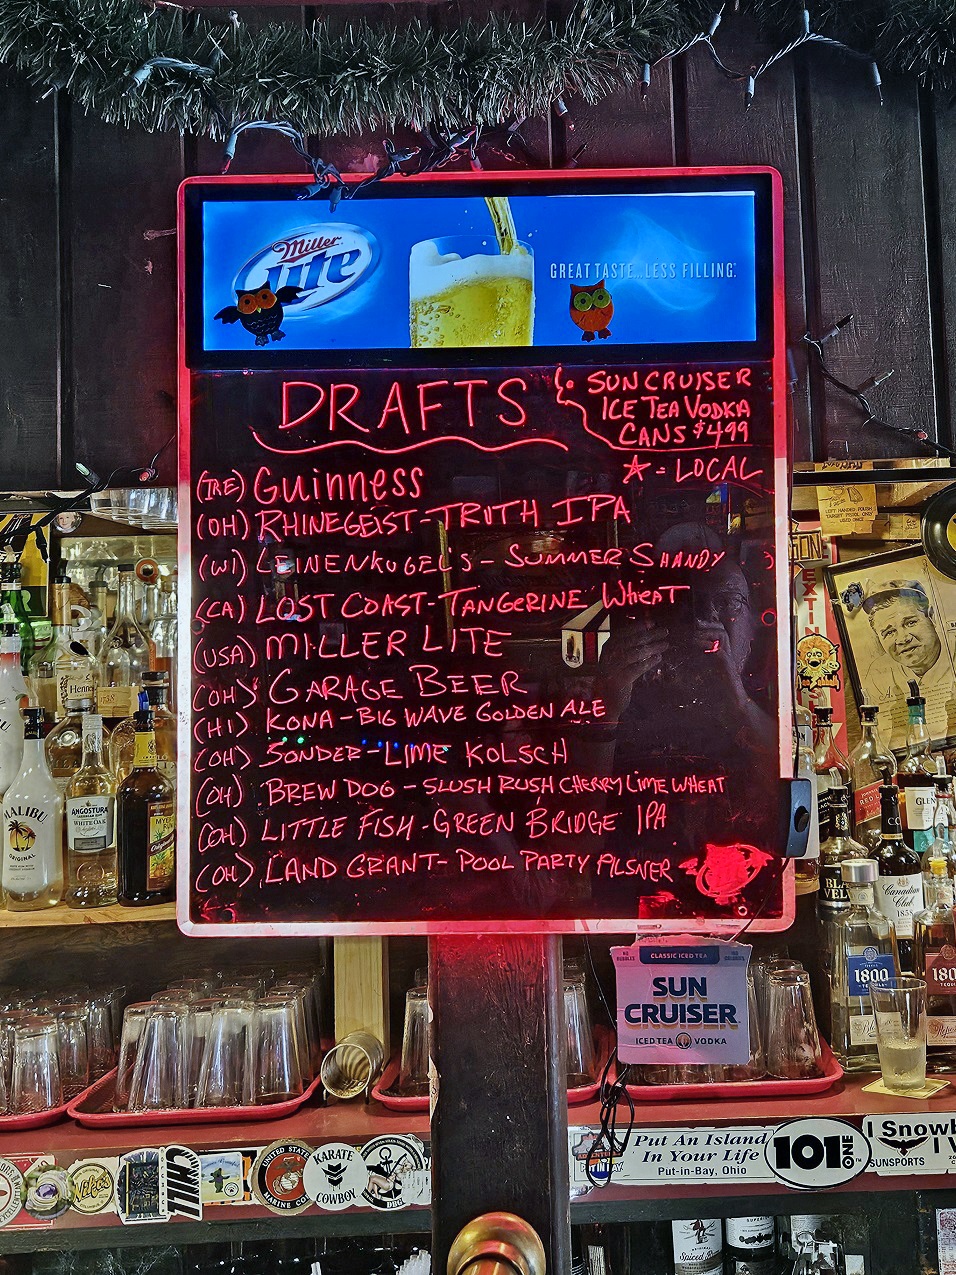 Miller
Lite
GREAT TASTE...LESS FILLING.
DRAFTS
SUN CRUISER
ICE TEA VODKA
CANS $4.99
☆ = LOCAL
(IRE) GUINNESS
(OH) RHINEGEIST - TRUTH IPA
(WI) LEINENKUGEL'S - SUMMER SHANDY
(CA) LOST COAST - TANGERINE WHEAT
(USA) MILLER LITE
(OH) GARAGE BEER
(HI) KONA - BIG WAVE GOLDEN ALE
(OH) SONDER - LIME KOLSCH
(OH) BREW DOG - SLUSH RUSH CHERRY LIME WHEAT
(OH) LITTLE FISH - GREEN BRIDGE IPA
(OH) LAND GRANT - POOL PARTY PILSNER
LEFT HANDED POLISH
TARGET PISTOL ONLY
USED ONCE
Henne
MALIBU
ORIGINAL
ANGOSTURA
WHITE OAK
Canadian
Club
1858
1800
TEQUILA
180
CLASSIC ICED TEA
SUN
CRUISER
ICED TEA VODKA
Put An Island
In Your Life
Put-in-Bay, Ohio
101
ONE
I Snowb
SUNSPORTS
CHILL
UNITED STATES
MARINE CO
KARATE
COWBOY
Spiced